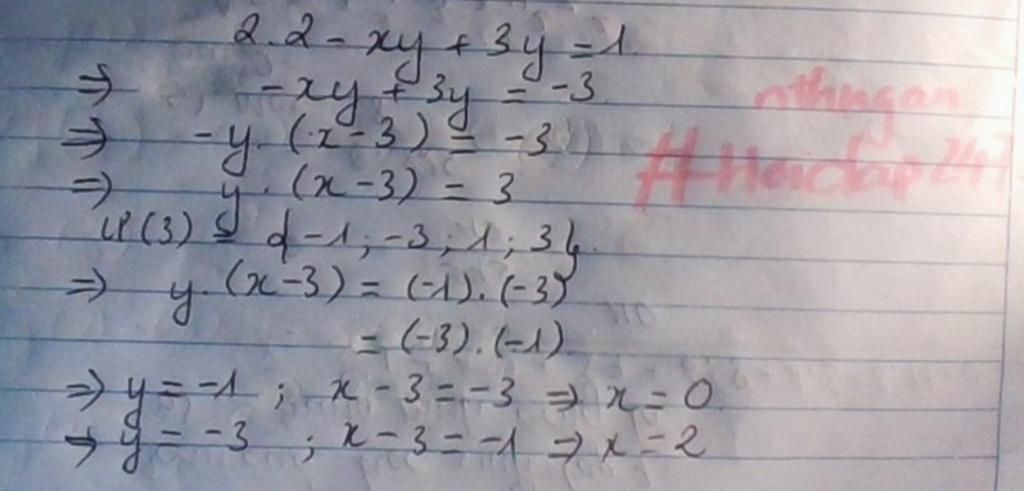 2.2 - xy + 3y = 1
⇒ -xy + 3y = -3
⇒ -y.(x-3) = -3
⇒ y.(x-3) = 3
Ư(3) = {-1; -3; 1; 3}
⇒ y.(x-3) = (-1).(-3)
= (-3).(-1)
⇒ y = -1 ; x - 3 = -3 ⇒ x = 0
⇒ y = -3 ; x - 3 = -1 ⇒ x = 2
nthngan
#Hoidap247